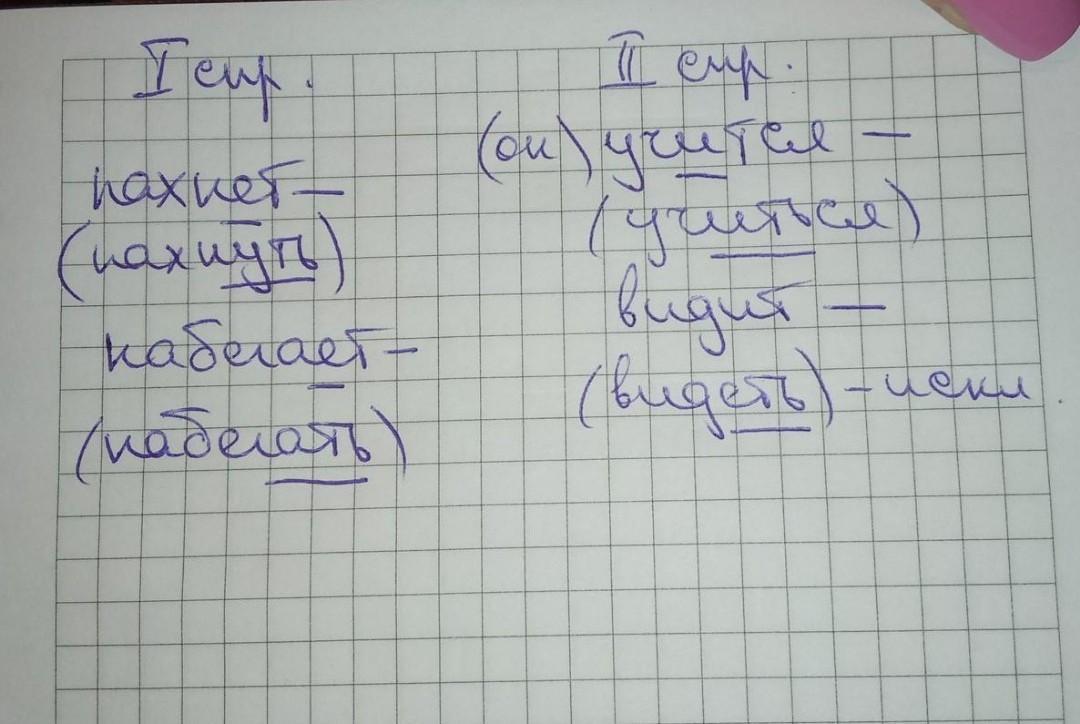 I спр.
пахнет —
(пахнуть)
набегает —
(набегать)
II спр.
(он) учится —
(учиться)
видит —
(видеть) – искл.